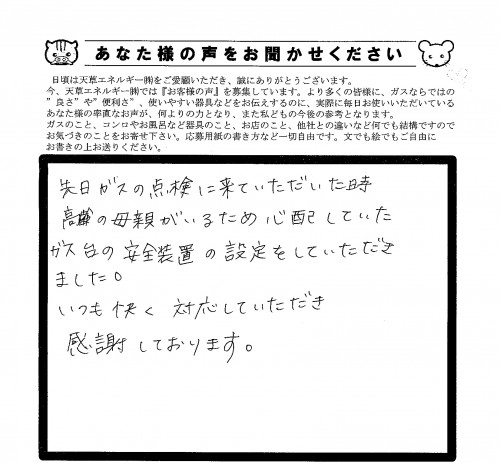 あなた様の声をお聞かせください
日頃は天草エネルギー㈱をご愛顧いただき、誠にありがとうございます。
今、天草エネルギー㈱では『お客様の声』を募集しています。より多くの皆様に、ガスならではの
”良さ”や”便利さ”、使いやすい器具などをお伝えするのに、実際に毎日お使いいただいている
あなた様の率直なお声が、何よりの力となり、また私どもの今後の参考となります。
ガスのこと、コンロやお風呂など器具のこと、お店のこと、他社との違いなど何でも結構ですので
お気づきのことをお寄せ下さい。応募用紙の書き方など一切自由です。文でも絵でもご自由に
お書きの上お送りください。
先日ガスの点検に来ていただいた時
高齢の母親がいるため心配していた
ガス台の安全装置の設定をしていただき
ました。
いつも快く対応していただき
感謝しております。